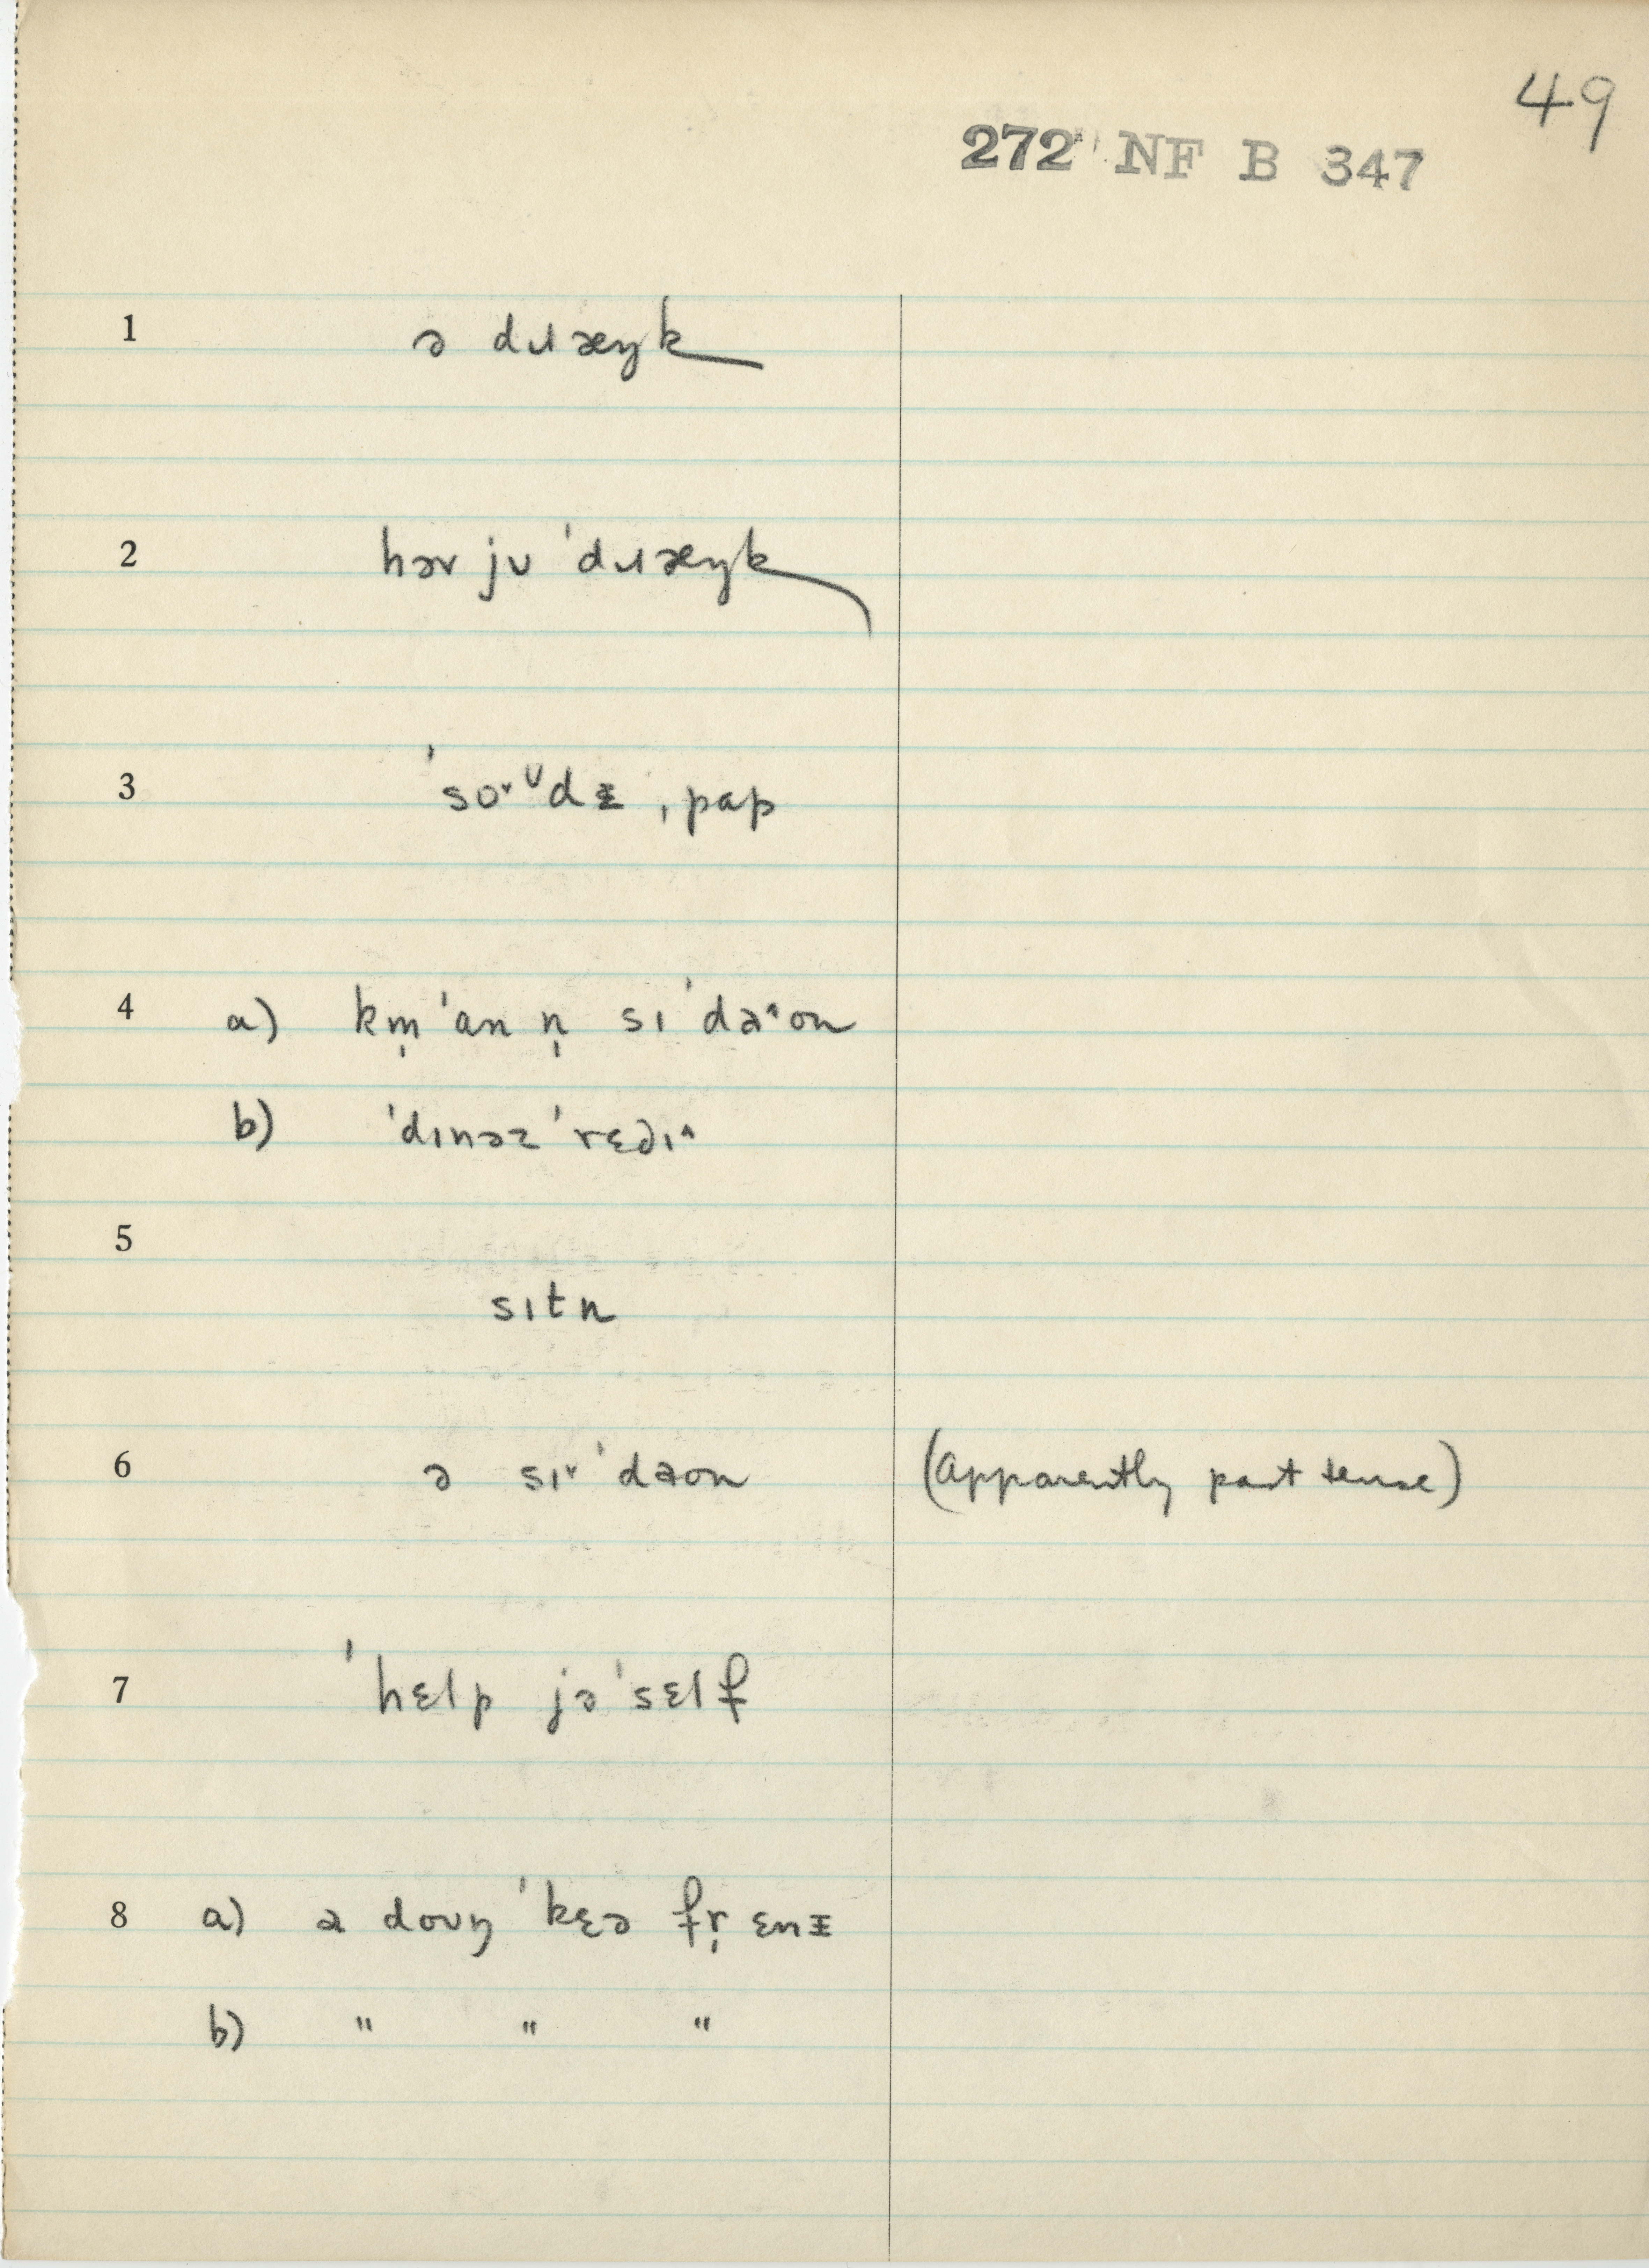 49
272 NF B 347
1 ə dɹæŋk
2 həv jʊ ˈdɹæŋk
3 ˈso˅ᶷdɨ ˌpap
4 a) km̩ ˈan n̩ sɪ ˈdə˄on
b) ˈdɪnəz ˈrɛdɪ˄
5
sɪtn
6 ə sɪ˅ ˈdəon (apparently past tense)
7 ˈhɛlp jə ˈsɛlf
8 a) ə doʊŋ ˈkɛə fr̩ ɛnɨ
b) " " "